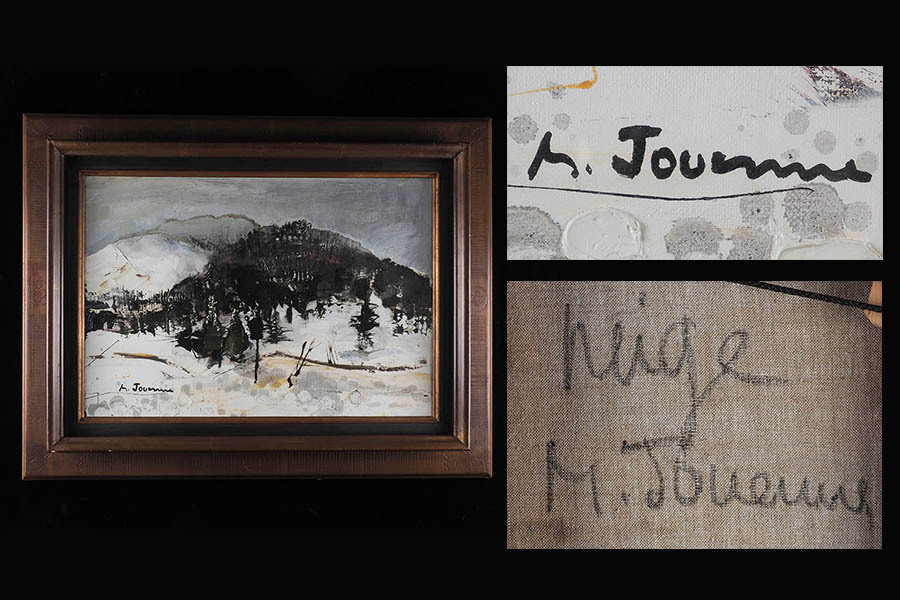 M. Jouenne
M. Jouenne
Neige
M. Jouenne